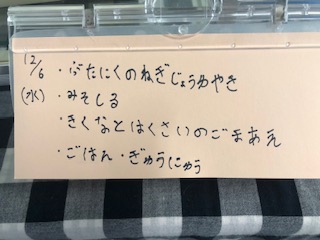 12/6 ・ぶたにくのねぎじょうゆやき
(水) ・みそしる
・きくなとはくさいのごまあえ
・ごはん・ぎゅうにゅう